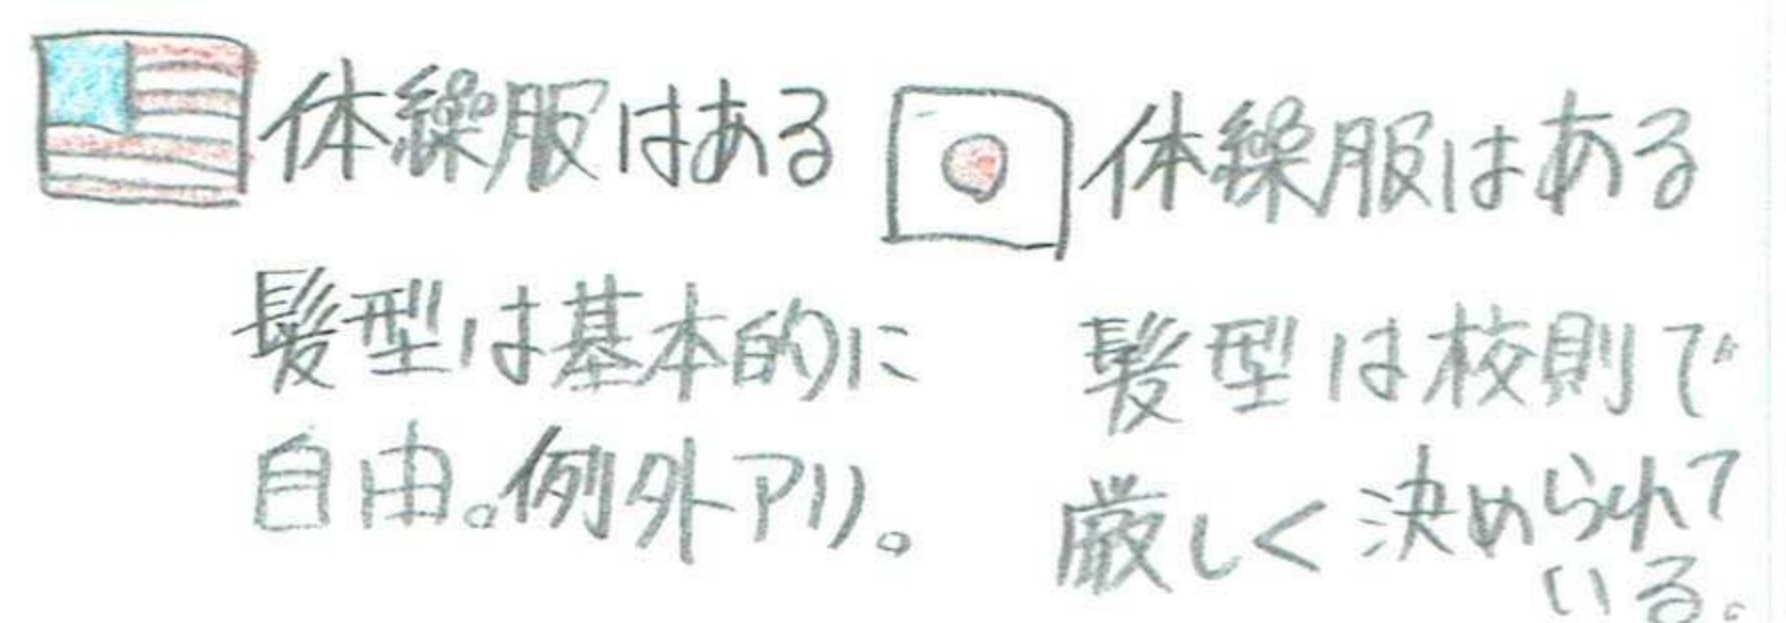 体操服はある
髪型は基本的に
自由。例外アリ。
体操服はある
髪型は校則で
厳しく決められて
いる。